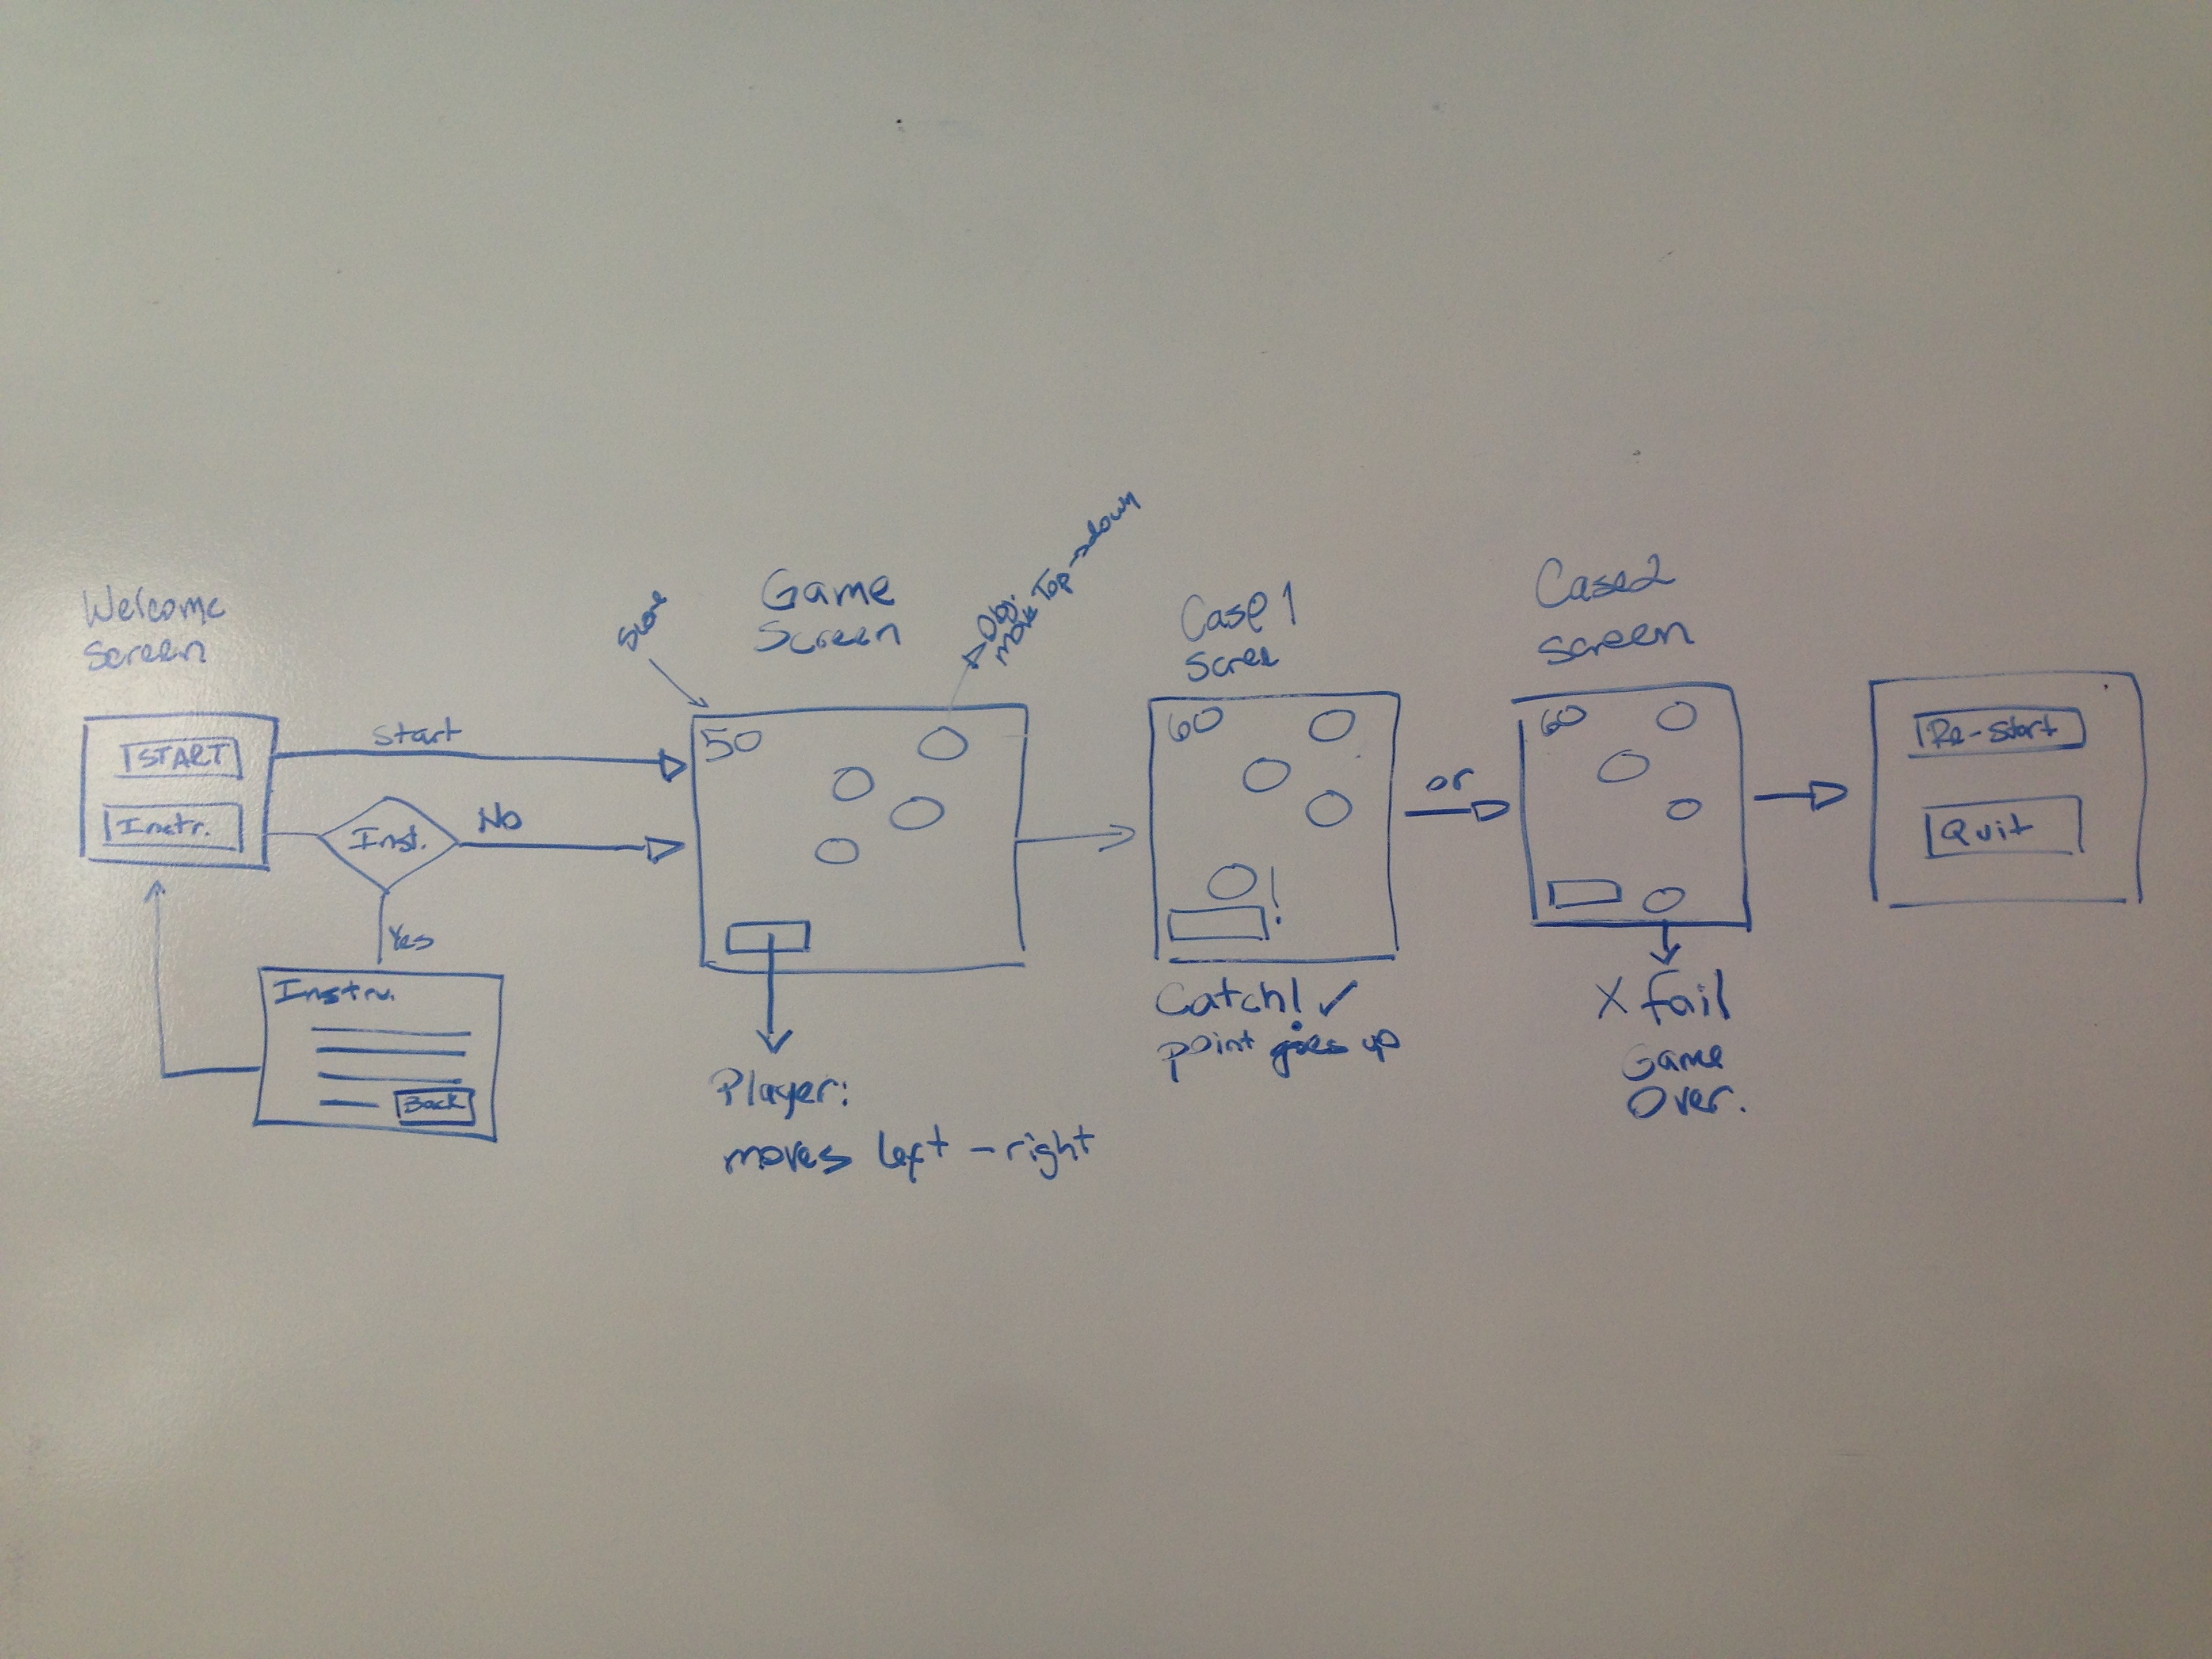 Welcome
Screen
START
Instr.
Start
Inst.
No
Yes
Instr.
Back
Score
Game
Screen
Obj.
move Top-down
50
Player:
moves left - right
Case 1
Scree
60
!
Catch! ✓
point goes up
or
Case2
screen
60
X fail
Game
Over.
Re-Start
Quit